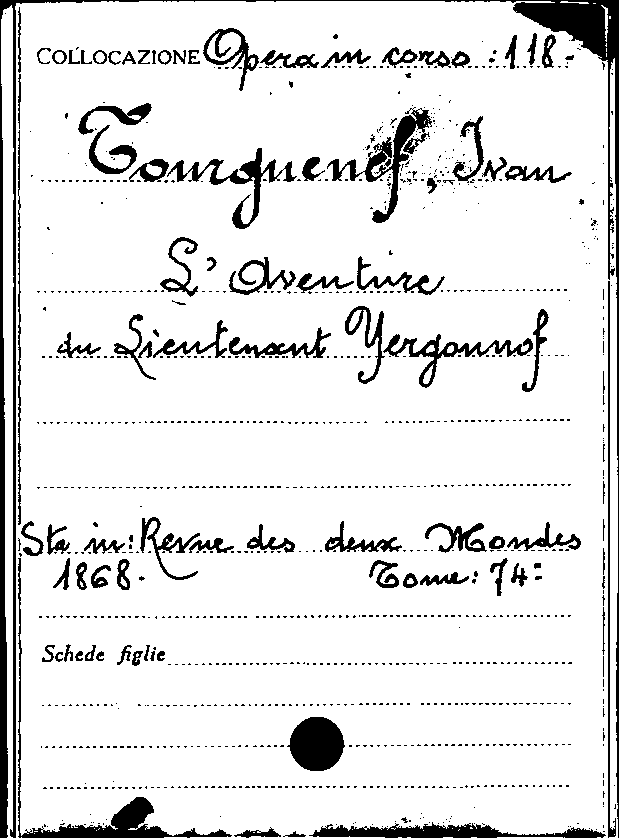 COLLOCAZIONE Opera in corso : 118.
Tourguenef, Ivan
L'Aventure
du Lieutenant Yergounof
Sta in: Revue des deux Mondes
1868. Tome: 74=
Schede figlie